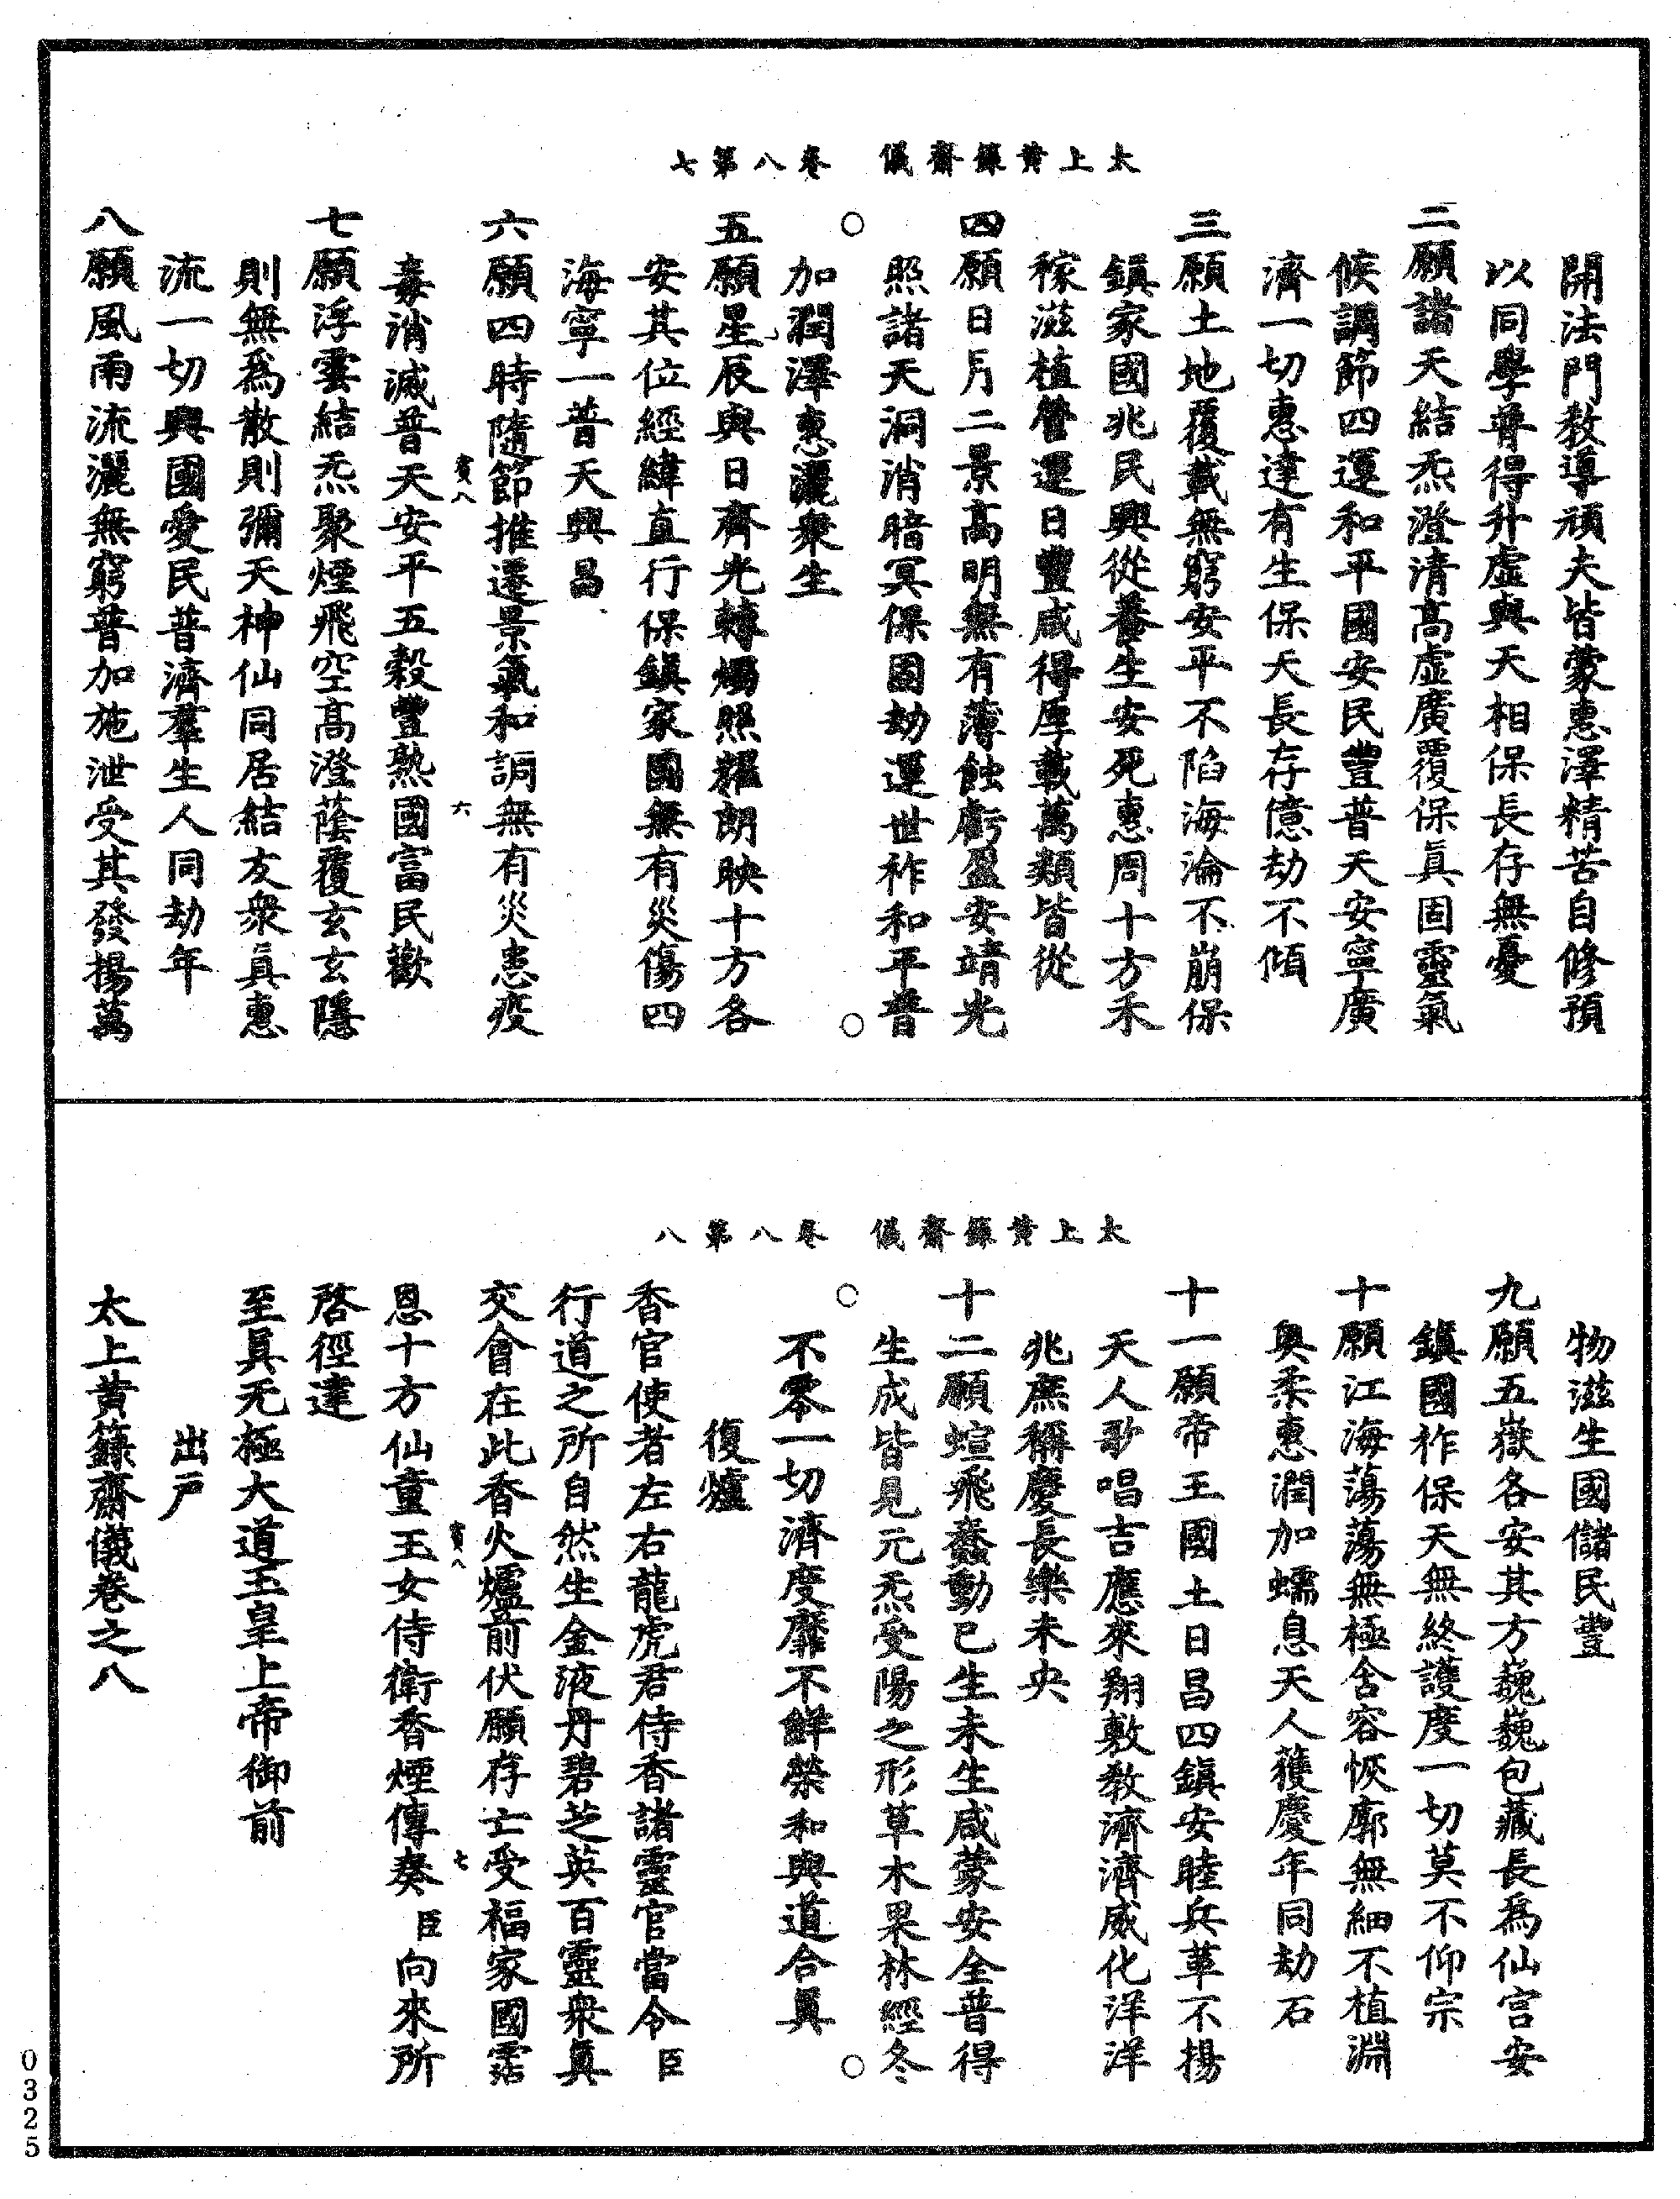 太上黃籙齋儀　卷八第七
開法門教導頑夫皆蒙惠澤精苦自修預
以同學普得升虛與天相保長存無憂
二願諸天結炁澄清高虛廣覆保真固靈氣
候調節四運和平國安民豐普天安寧廣
濟一切惠達有生保天長存億劫不傾
三願土地覆載無窮安平不陷海淪不崩保
鎮家國兆民興從養生安死惠周十方禾
稼滋植營運日豐咸得厚載萬類皆從
四願日月二景高明無有薄蝕虧盈安靖光
照諸天洞消暗冥保固劫運世祚和平普
加潤澤惠灑衆生
五願星辰與日齊光轉燭照耀朗映十方各
安其位經緯直行保鎮家國無有災傷四
海寧一普天興昌
六願四時隨節推遷景氣和調無有災患疫
毒消滅普天安平五穀豐熟國富民歡
賓八　六
七願浮雲結炁聚煙飛空高澄蔭覆玄玄隱
則無為散則彌天神仙同居結友衆真惠
流一切興國愛民普濟羣生人同劫年
八願風雨流灑無窮普加施泄受其發揚萬
太上黃籙齋儀　卷八第八
物滋生國儲民豐
九願五嶽各安其方巍巍包藏長為仙宮安
鎮國祚保天無終護度一切莫不仰宗
十願江海蕩蕩無極含容恢廓無細不植淵
奧柔惠潤加蠕息天人獲慶年同劫石
十一願帝王國土日昌四鎮安睦兵革不揚
天人歌唱吉應來翔敷教濟濟威化洋洋
兆庶稱慶長樂未央
十二願蝖飛蠢動已生未生咸蒙安全普得
生成皆見元炁受陽之形草木果林經冬
不零一切濟度靡不鮮榮和與道合真
復爐
香官使者左右龍虎君侍香諸靈官當令臣
行道之所自然生金液丹碧芝英百靈衆真
交會在此香火爐前伏願存亡受福家國霑
賓八　七
恩十方仙童玉女侍衛香煙傳奏臣向來所
啓徑達
至真无極大道玉皇上帝御前
出戶
太上黃籙齋儀卷之八
0325